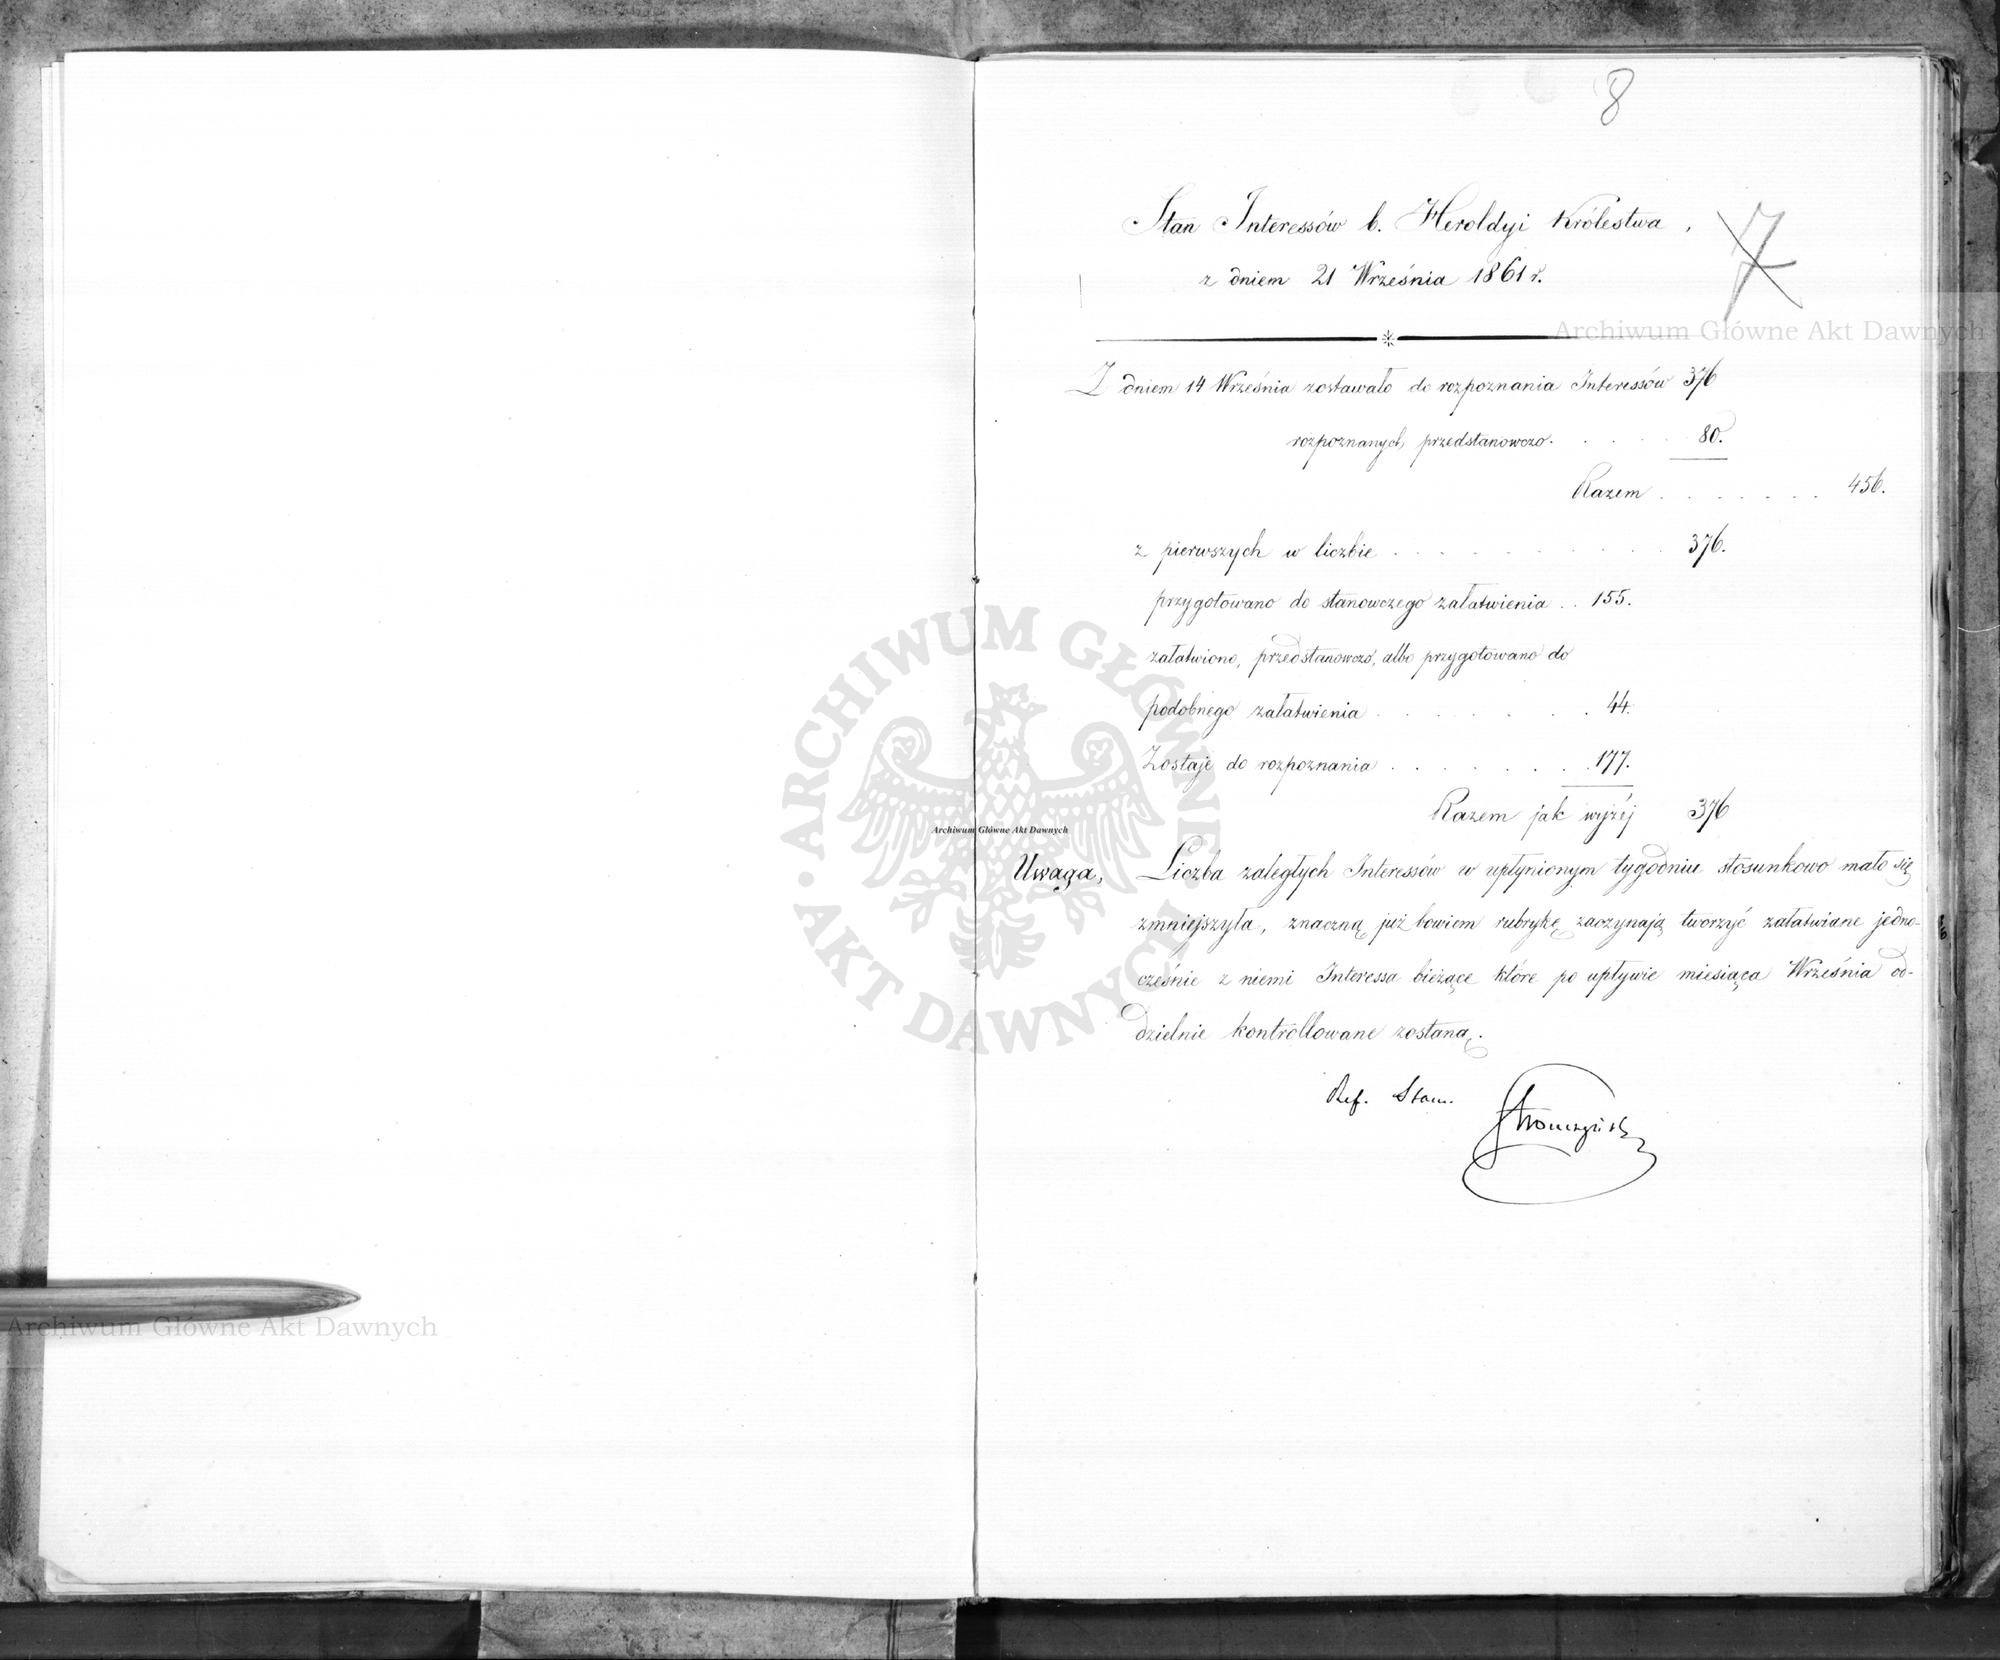 8
Stan Interessów b. Heroldyi Królestwa,
7
z dniem 21 Września 1861 r.
Archiwum Główne Akt Dawnych
Z dniem 14 Września zostawało do rozpoznania Interessów 376
rozpoznanych przedstanowczo . . . . 80.
Razem . . . . . . . 456.
z pierwszych w liczbie . . . . . . . . . . 376.
przygotowano do stanowczego załatwienia . . 155.
załatwiono, przedstanowczo, albo przygotowano do
podobnego załatwienia . . . . . . . 44.
Zostaje do rozpoznania . . . . . . . 177.
Razem jak wyżéj 376
Uwaga, Liczba zaległych Interessów w upłynionym tygodniu stosunkowo mało się
zmniejszyła, znaczną już bowiem rubrykę zaczynają tworzyć załatwiane jedno-
cześnie z niemi Interessa bieżące które po upływie miesiąca Września od-
dzielnie kontrollowane zostaną.
Ref. Stanu
Stronczyński
ARCHIWUM GŁÓWNE
AKT DAWNYCH
Archiwum Główne Akt Dawnych
Archiwum Główne Akt Dawnych